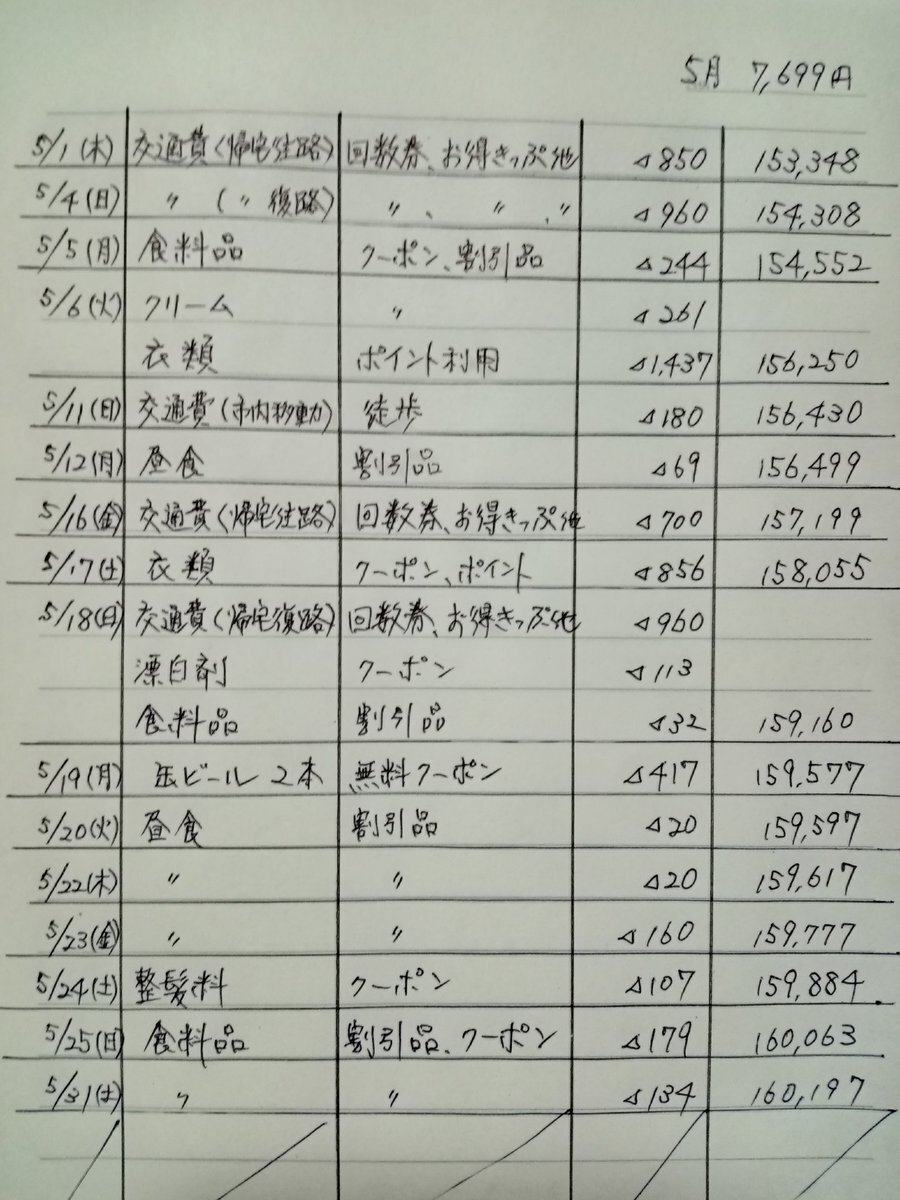 5月 7,699円
5/1(木) 交通費(帰宅往路) 回数券、お得きっぷ他 △850 153,348
5/4(日) 〃 (〃復路) 〃、〃、〃 △960 154,308
5/5(月) 食料品 クーポン、割引品 △244 154,552
5/6(火) クリーム 〃 △261
衣類 ポイント利用 △1,437 156,250
5/11(日) 交通費(市内移動) 徒歩 △180 156,430
5/12(月) 昼食 割引品 △69 156,499
5/16(金) 交通費(帰宅往路) 回数券、お得きっぷ他 △700 157,199
5/17(土) 衣類 クーポン、ポイント △856 158,055
5/18(日) 交通費(帰宅復路) 回数券、お得きっぷ他 △960
漂白剤 クーポン △113
食料品 割引品 △32 159,160
5/19(月) 缶ビール2本 無料クーポン △417 159,577
5/20(火) 昼食 割引品 △20 159,597
5/22(木) 〃 〃 △20 159,617
5/23(金) 〃 〃 △160 159,777
5/24(土) 整髪料 クーポン △107 159,884
5/25(日) 食料品 割引品、クーポン △179 160,063
5/31(土) 〃 〃 △134 160,197